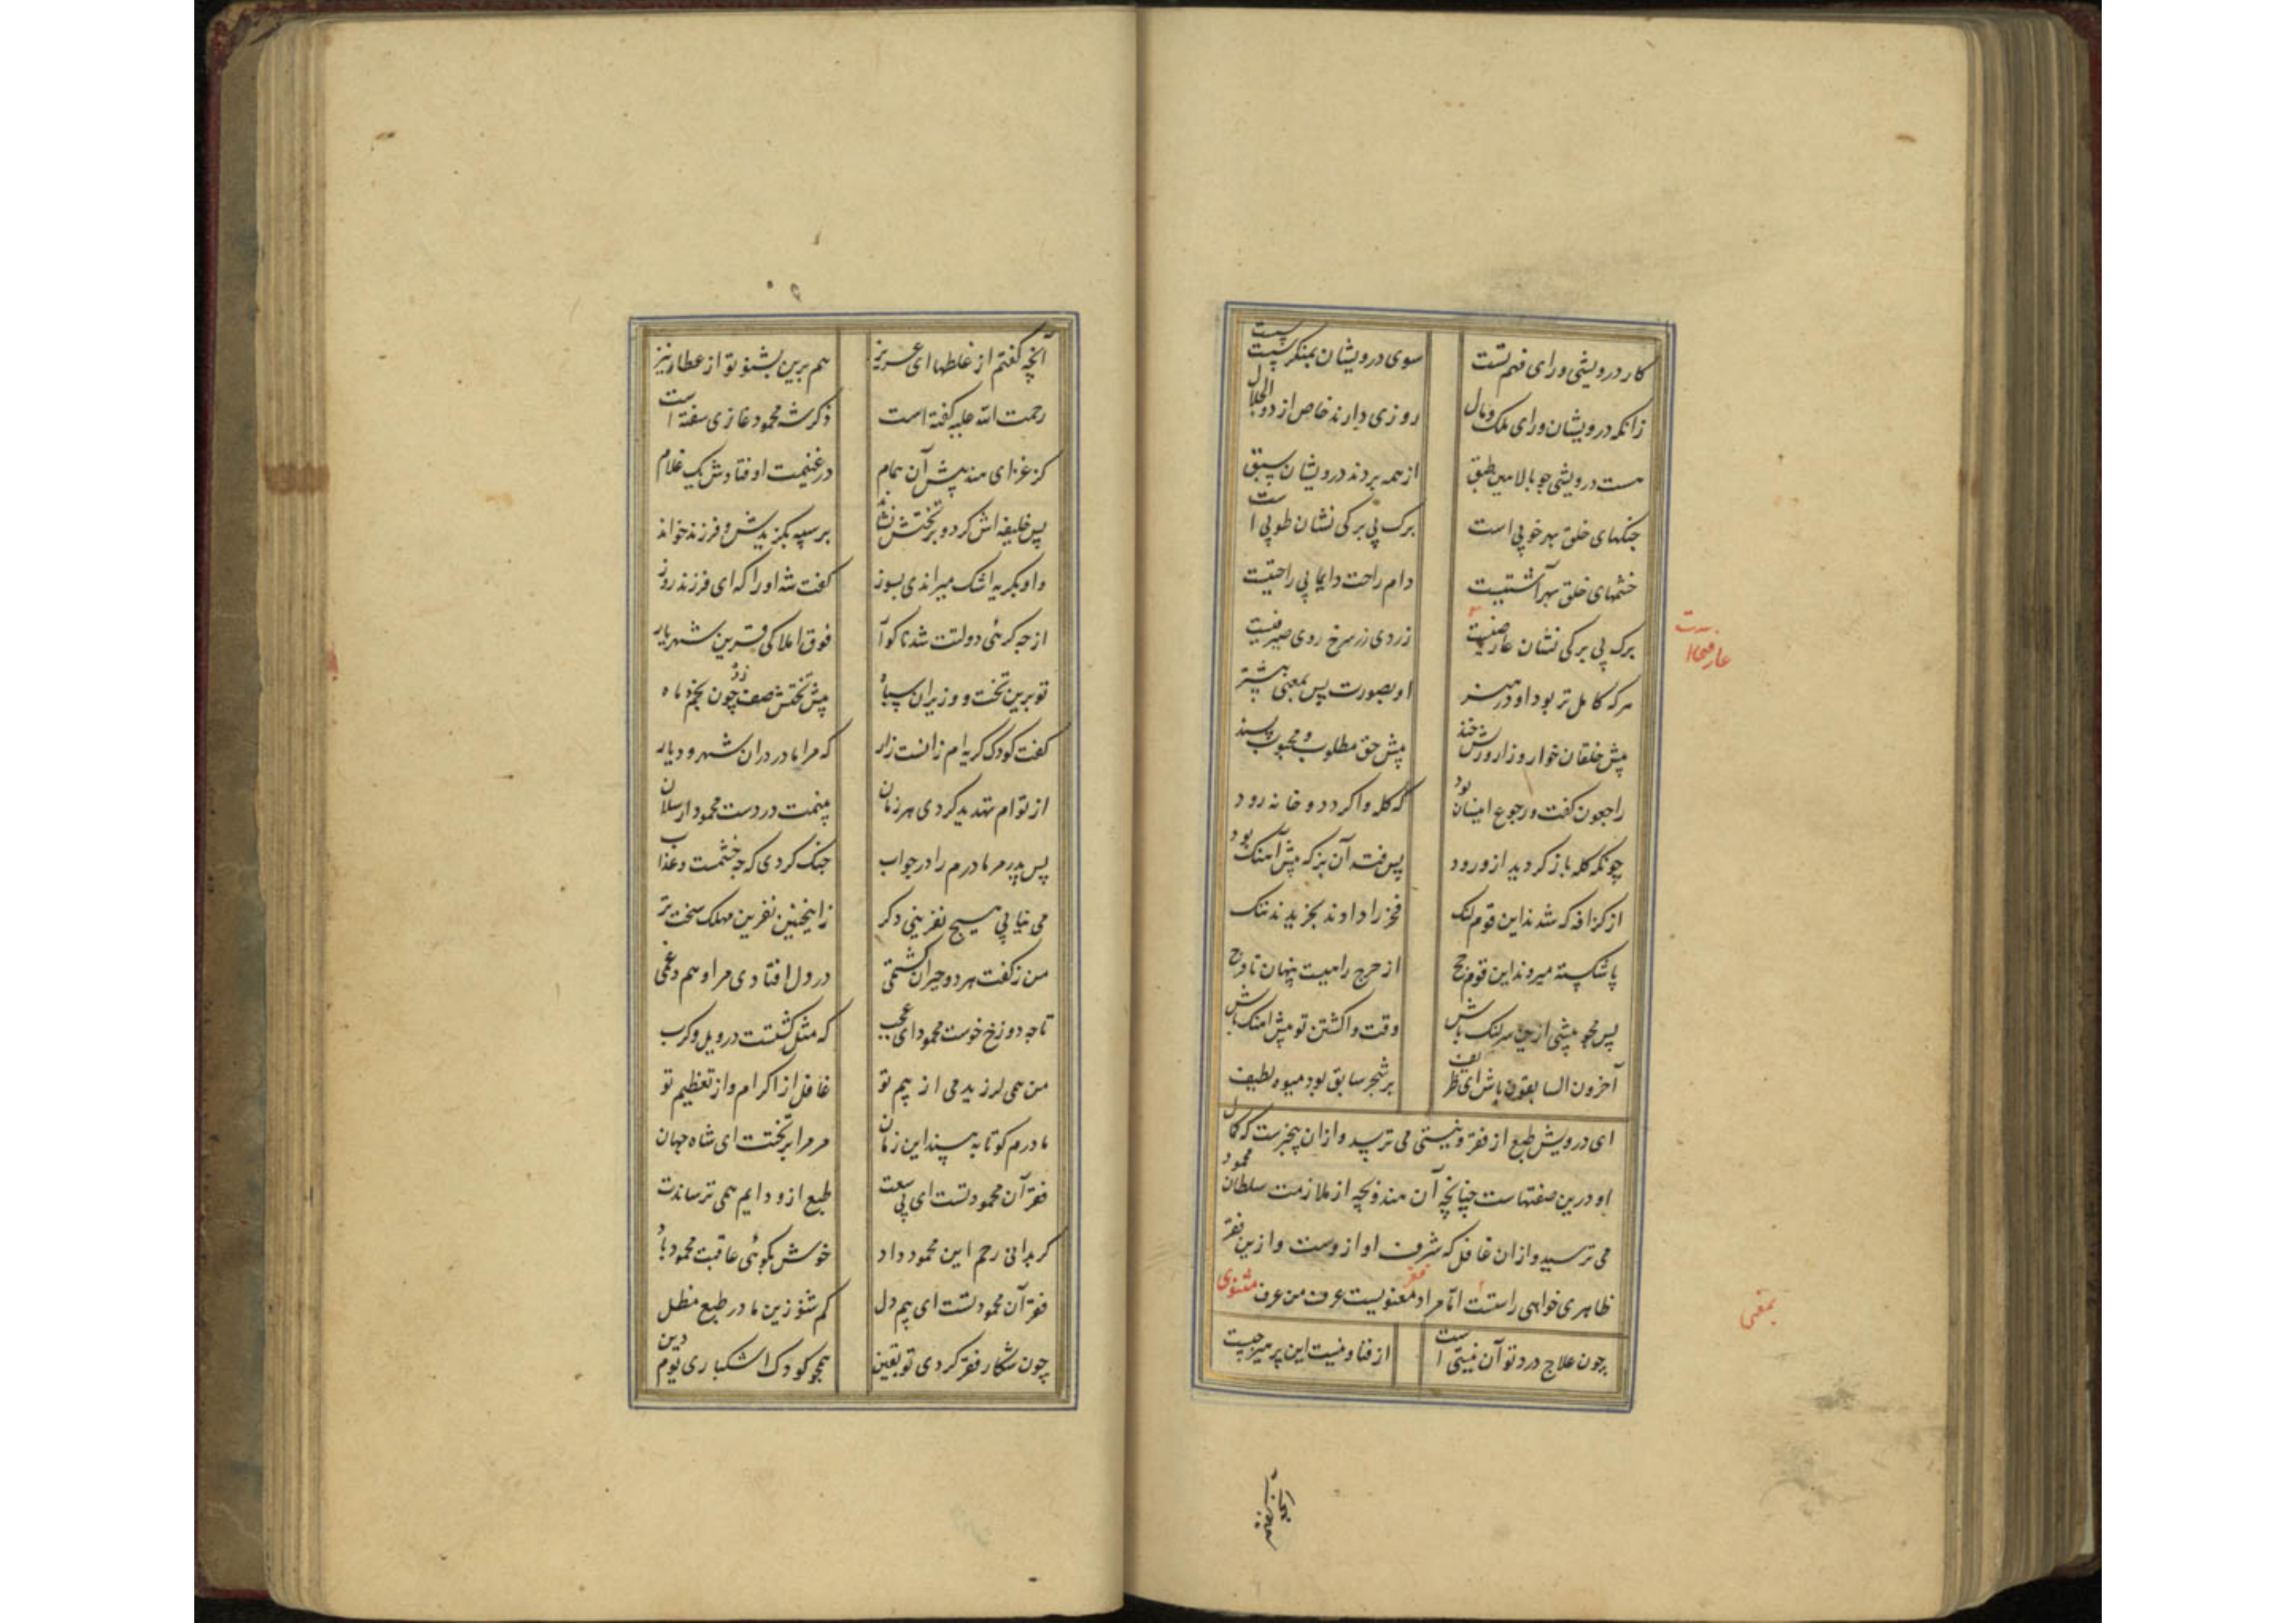 کار درویشی ورای فهم تست سوی درویشان بمنکر سست سست
زانکه درویشان ورای ملک و مال روزی دارند خاص از ذوالجلال
هست درویشی چو بالامین طبق از همه بردند درویشان سبق
جنکهای خلق بهر خوبی است برک بی برکی نشان طوبی است
خشمهای خلق بهر آشتیست دام راحت دایما بی راحتیست
برک بی برکی نشان عارفیست زردی زر سرخ روی صیرفیست
هرکه کامل تر بود او در هنر او بصورت پس بمعنی پیشتر
پیش خلقان خوار و زار و ریش خند پیش حق مطلوب و محبوب و پسند
راجعون کفت و رجوع اینسان بود که کله واکردد و خانه رود
چونکه کله باز کردید از ورود پس فتد آن بز که پیش آهنک بود
از کزافه که شدند این قوم لنک فخر را دادند بخزیدند ننک
پا شکسته میروند این قوم حج از حرج راهیست پنهان تا فرج
پس مجو پیشی ازین سر لنک باش وقت واکشتن تو پیش آهنک باش
آخرون السابقون باش ای ظریف بر شجر سابق بود میوه لطیف
ای درویش طبع از فقر و نیستی می ترسد و ازان بیخبرست که کمال
او درین صفتهاست چنانچه آن هندوبچه از ملازمت سلطان محمود
می ترسید و ازان غافل که شرف او ازوست و ازین فقر
ظاهری خواهی راستست اما مراد فقر معنویست عرف من عرف مثنوی
چون علاج درد تو آن نیستی است از فنا و نیست این پرهیز چیست
عارفیست
بمعنی
آنچه کفتم
آنچه کفتم از غلطها ای عزیز هم برین بشنو تو از عطار نیز
رحمت الله علیه کفته است ذکر شه محمود غازی سفته است
کز غزای هند پیش آن همام در غنیمت اوفتادش یک غلام
پس خلیفه اش کرد و بر تختش نشاند بر سپه بکزیدش و فرزند خواند
داو بکریه اشک میراندی بسوز کفت شه او را که ای فرزند روز
از چه کرئی دولتت شد ناکوار فوق املاکی قرین شهریار
تو برین تخت و وزیران سپاه پیش تختش صف زده چون نجم و ماه
کفت کودک کریه ام زانست زار که مرا مادر دران شهر و دیار
از توام تهدید کردی هر زمان بینمت در دست محمود ارسلان
پس پدر مر مادرم را در جواب جنک کردی که چه خشمست و عذاب
می نیابی هیچ نفرینی دکر زاینچنین نفرین مهلک سخت تر
من ز کفت هر دو حیران کشتمی در دل افتادی مرا وهم و غمی
تا چه دوزخ خوست محمود ای عجب که مثل کشتست در ویل و کرب
من همی لرزیدمی از بیم تو غافل از اکرام و از تعظیم تو
مادرم کو تا به بیند این زمان مر مرا بر تختت ای شاه جهان
فقر آن محمود تست ای بی سعت طبع ازو دایم همی ترساندت
کر بدانی رحم این محمود داد خوش بکوئی عاقبت محمود باد
فقر آن محمود تست ای بیم دل کم شنو زین مادر طبع مظل
چون شکار فقر کردی تو یقین همچو کودک اشکباری یوم دین